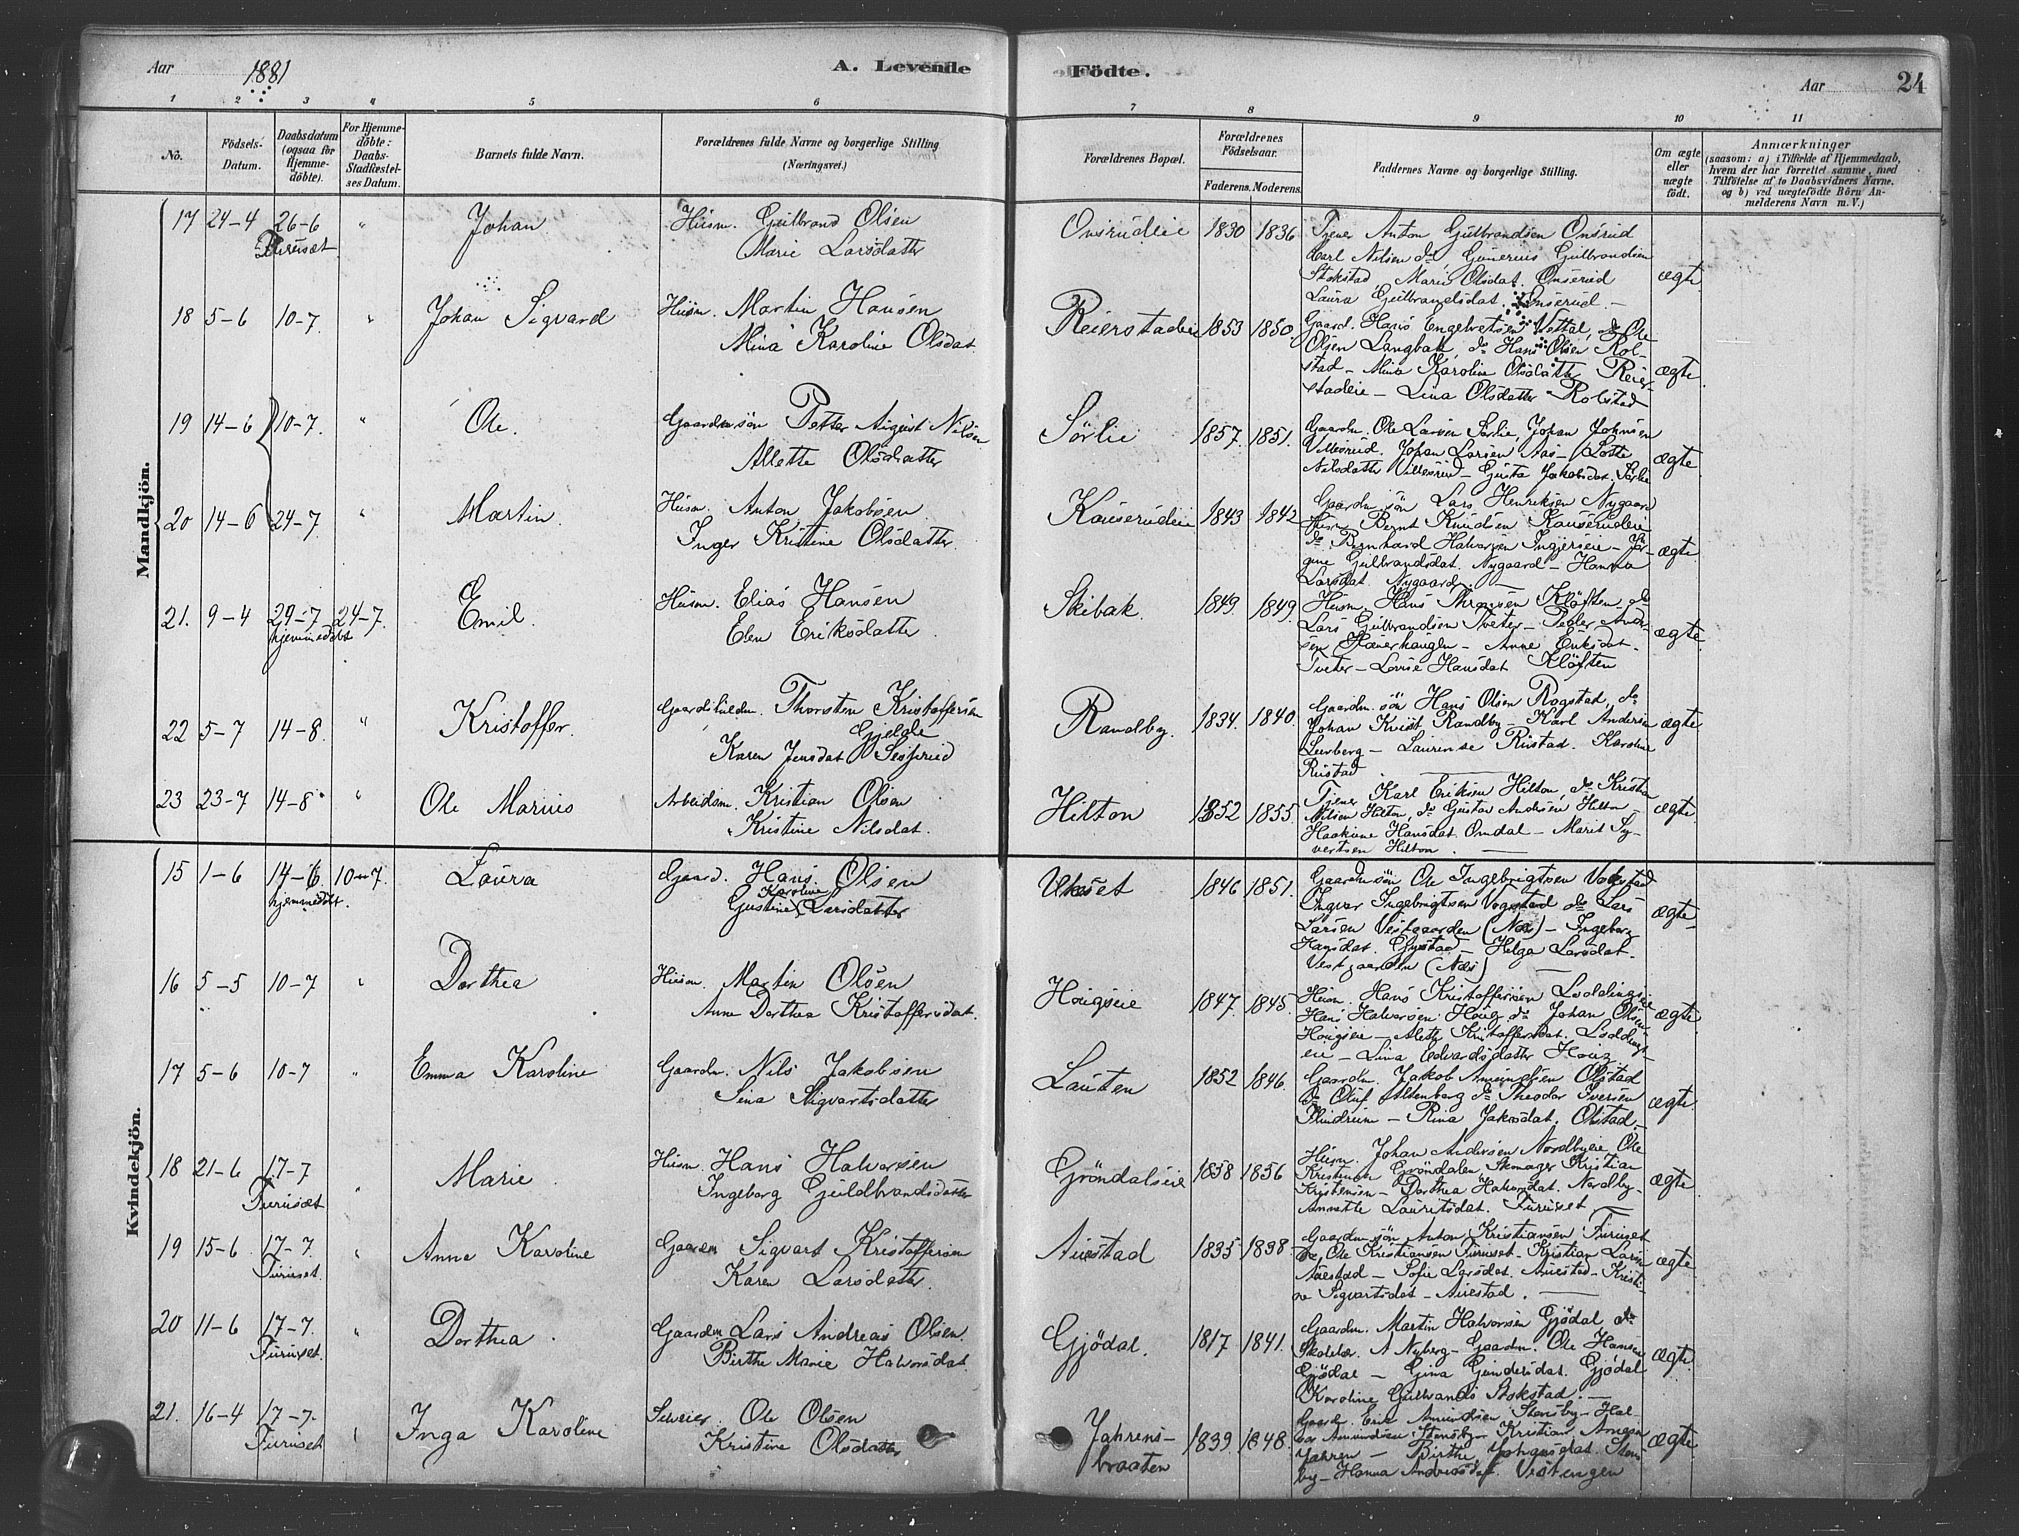 Aar 1881 A. Levende Födte. Aar 24
1 2 3 4 5 6 7 8 9 10 11
No.
Födsels-Datum.
Daabsdatum (ogsaa for Hjemmedöbte).
For Hjemmedöbte: Daabs-Stadfæstelses Datum.
Barnets fulde Navn.
Forældrenes fulde Navne og borgerlige Stilling (Næringsvei.)
Forældrenes Bopæl.
Forældrenes Födselsaar.
Faderens. Moderens.
Faddernes Navne og borgerlige Stilling.
Om ægte eller uægte födt.
Anmærkninger
(saasom: a) i Tilfælde af Hjemmedaab, hvem der har forrettet samme, med Tilföielse af to Daabsvidners Navne, og b) ved uægtefödte Börn Anmelderens Navn m. V.)
Mandkjön.
17 24-4 26-6 " Johan Husm. Gulbrand Olsen Onsrudeie 1830 1836 Tjener Anton Gulbrandsen Onsrud
Furuset Marie Larsdatter Karl Nilsen do, Gunerius Gulbrandsen
Stokstad Marie Olsdat. Onserud ægte
Laura Gulbrandsdat. Onserud –
18 5-6 10-7. " Johan Sigvard Husm. Martin Hansen Reierstadeie 1853 1850 Gaard. Hans Engebretsen Vettal, do Ole
Mina Karoline Olsdat. Olsen Langbak, do Hans Olsen Rolstad – Mina Karoline Olsdatter Reierstadeie – Lina Olsdatter Rolstad ægte
19 14-6 10-7. " Ole. Gaardmsön Petter August Nilsen Sörlie 1857. 1851. Gaardm. Ole Larsen Sörlie, Johan Johnsen
Allette Olsdatter Villesrud. Johan Larsen Aas – Lotte ægte
Nilsdatter Villesrud – Gusta Jakobsdat. Sörlie
20 14-6 24-7. " Martin. Husm. Anton Jakobsen Kauserudeie 1843 1842 Gaardm. sön Lars Henriksen Nygaard
Inger Kristine Olsdatter. Husm. Bernt Knudsen Kauserudeie
do Bernhard Halvorsen Ingierseie – Jörgine Gulbrandsdat. Nygaard – Hanna ægte
Larsdat. Nygaard. –
21. 9-4 29-7 24-7. Emil. Husm. Elias Hansen Skibak. 1849. 1849. Husm. Hans Thronsen Klöften do
hjemmedöbt Elen Eriksdatter. Lars Gulbrandsen Tveter – Peder Andersen – Anne Eriksdat. ægte
Tveter – Lovise Hansdat. Klöften
22 5-7 14-8. " Kristoffer. Gaardbruderm. Thorsten Kristoffersen Gjelde Randby. 1834. 1840. Gaardm. sön Hans Olsen Rogstad, do
Karen Jensdat Johan Knust Randby – Karl Andersen ægte
Leirberg – Laurense Rustad. Karoline
Rustad
23 23-7 14-8. " Ole Marius Arbeidsm. Kristian Olsen Hilton 1852 1855. Tjener Karl Eriksen Hilton, do Kristian
Kristine Nilsdat. Nilsen Hilton, do Gustav Andersen Hilton ægte.
Haakine Hansdat. Omdal – Marit Syvertsen Hilton. –
Kvindekjön.
15 1-6 14-6. 10-7. Laura Gaard. Hans Olsen Ukset 1846. 1851. Gaardm sön Ole Ingebrigtsen Vogstad
hjemmedöbt. Gustine Karoline Larsdatter Ingvar Ingebrigtsen Vogstad do Lars
Larsen Vestgaarden (Næs) – Ingeborg ægte
Hansdat. Gystad – Helga Larsdat.
Vestgaarden (Næs) –
16 5-5 10-7 " Dorthea Husm. Martin Olsen Hougseie 1847. 1845. Husm. Hans Kristoffersen Loddingseie
Anne Dorthea Kristoffersdat. Hans Halvorsen Houg do Johan Olsen ægte
Hougseie – Alette Kristoffersdat. Loddingseie – Lina Edvardsdatter Houg
17 5-6 10-7 " Emma Karoline Gaardm. Nils Jakobsen Lauten 1852 1846. Gaardm. Jakob Amundsen Olstad
Sina Sigvartsdatter do Oluf Altenborg do Theodor Iversen ægte
Flindrum – Rina Jakobsdat. Olstad. –
18 21-6 17-7 " Marie Husm. Hans Halvorsen Gröndalseie 1858 1856 Husm. Johan Andersen Nordbyeie Ole
Furuset Ingeborg Guldbrandsdatter Kristensen Gröndalen, Skomager Kristian
Kristensen – Dorthea Halvorsdat. Nordby – ægte
Annette Lauritsdat. Furuset –
19 15-6 17-7. " Anna Karoline Gaardm Sigvart Kristoffersen Auestad 1835 1838. Gaardm. sön Anton Kristiansen Furuset
Furuset. Karen Larsdatter. do Ole Kristiansen Furuset – Kristian Larsen ægte
Auestad – Sofie Larsdat. Auestad – Kristine Sigvartsdat – Auestad. –
20 11-6 17-7. " Dorthea. Gaardm Lars Andreas Olsen. Gjödal. 1817 1841. Gaardm. Martin Halvorsen Gjödal do
Furuset. Birthe Marie Halvorsdat. Skolelær. A Nyberg – Gaardm. Ole Hansen ægte
Gjödal – Gina Gundersdat. Gjödal
Karoline Gulbrands Stokstad. –
21. 16-4 17-7. Inga Karoline Selveier. Ole Olsen Jahrens-braaten 1839. 1848. Gaardm. Erik Amundsen Stensby – Halvor Amundsen Stensby – Kristian Arnesen
Furuset Kristine Olsdatter Jahren – Birthe Johansdat. Stensby – Hanna Andreasdat. Vestengen ægte